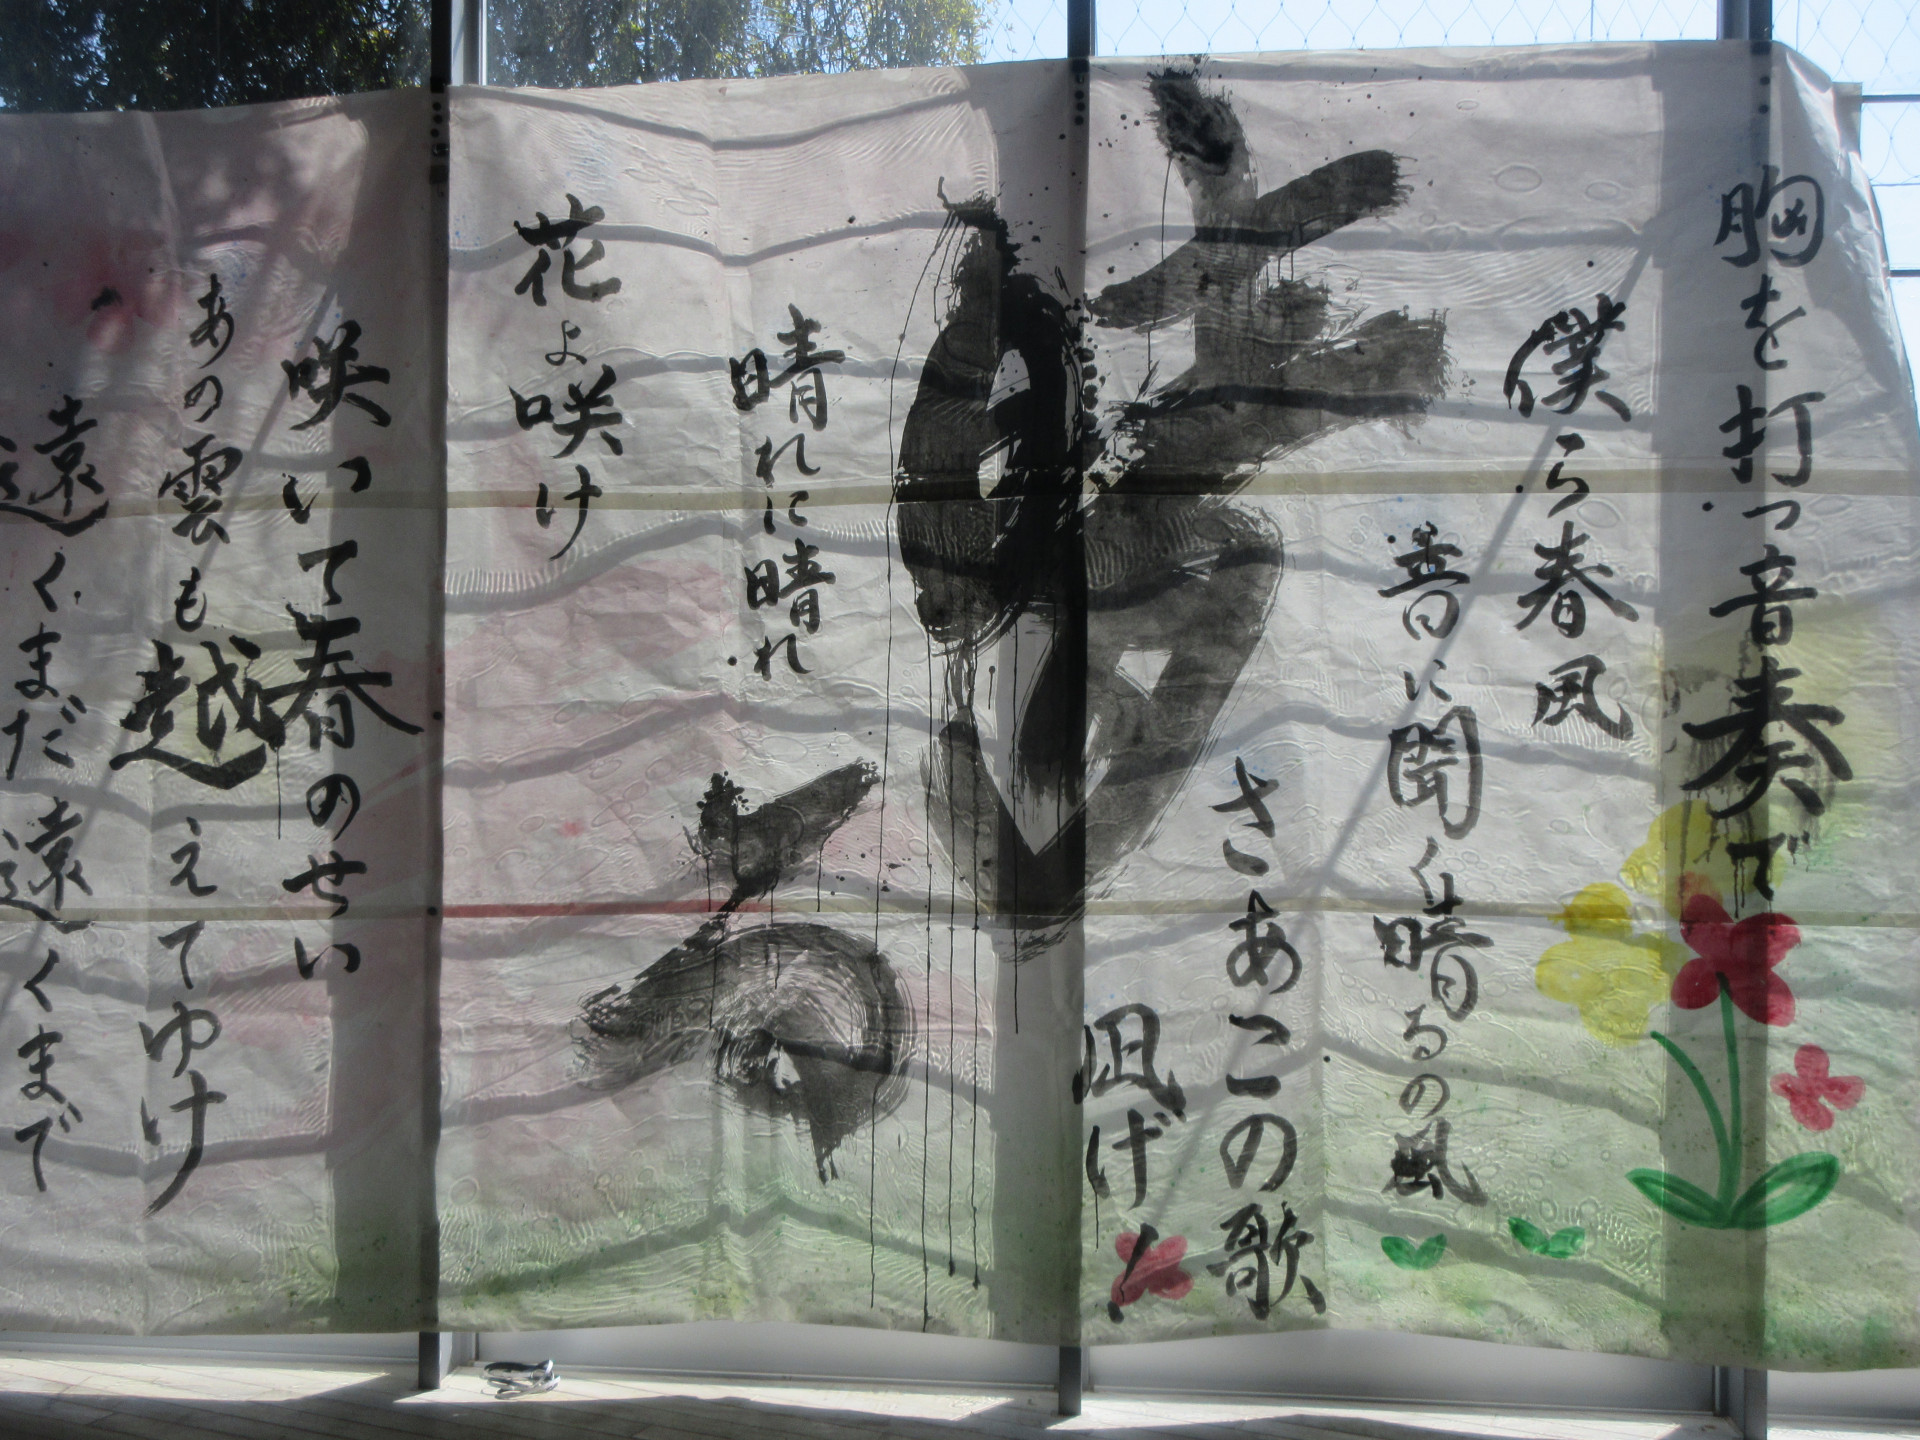 胸を打つ音奏で
僕ら春風
音に聞く晴るの風
さあこの歌
凪げ！
晴る
晴れに晴れ
花よ咲け
咲いて春のせい
あの雲も越えてゆけ
遠くまだ遠くまで